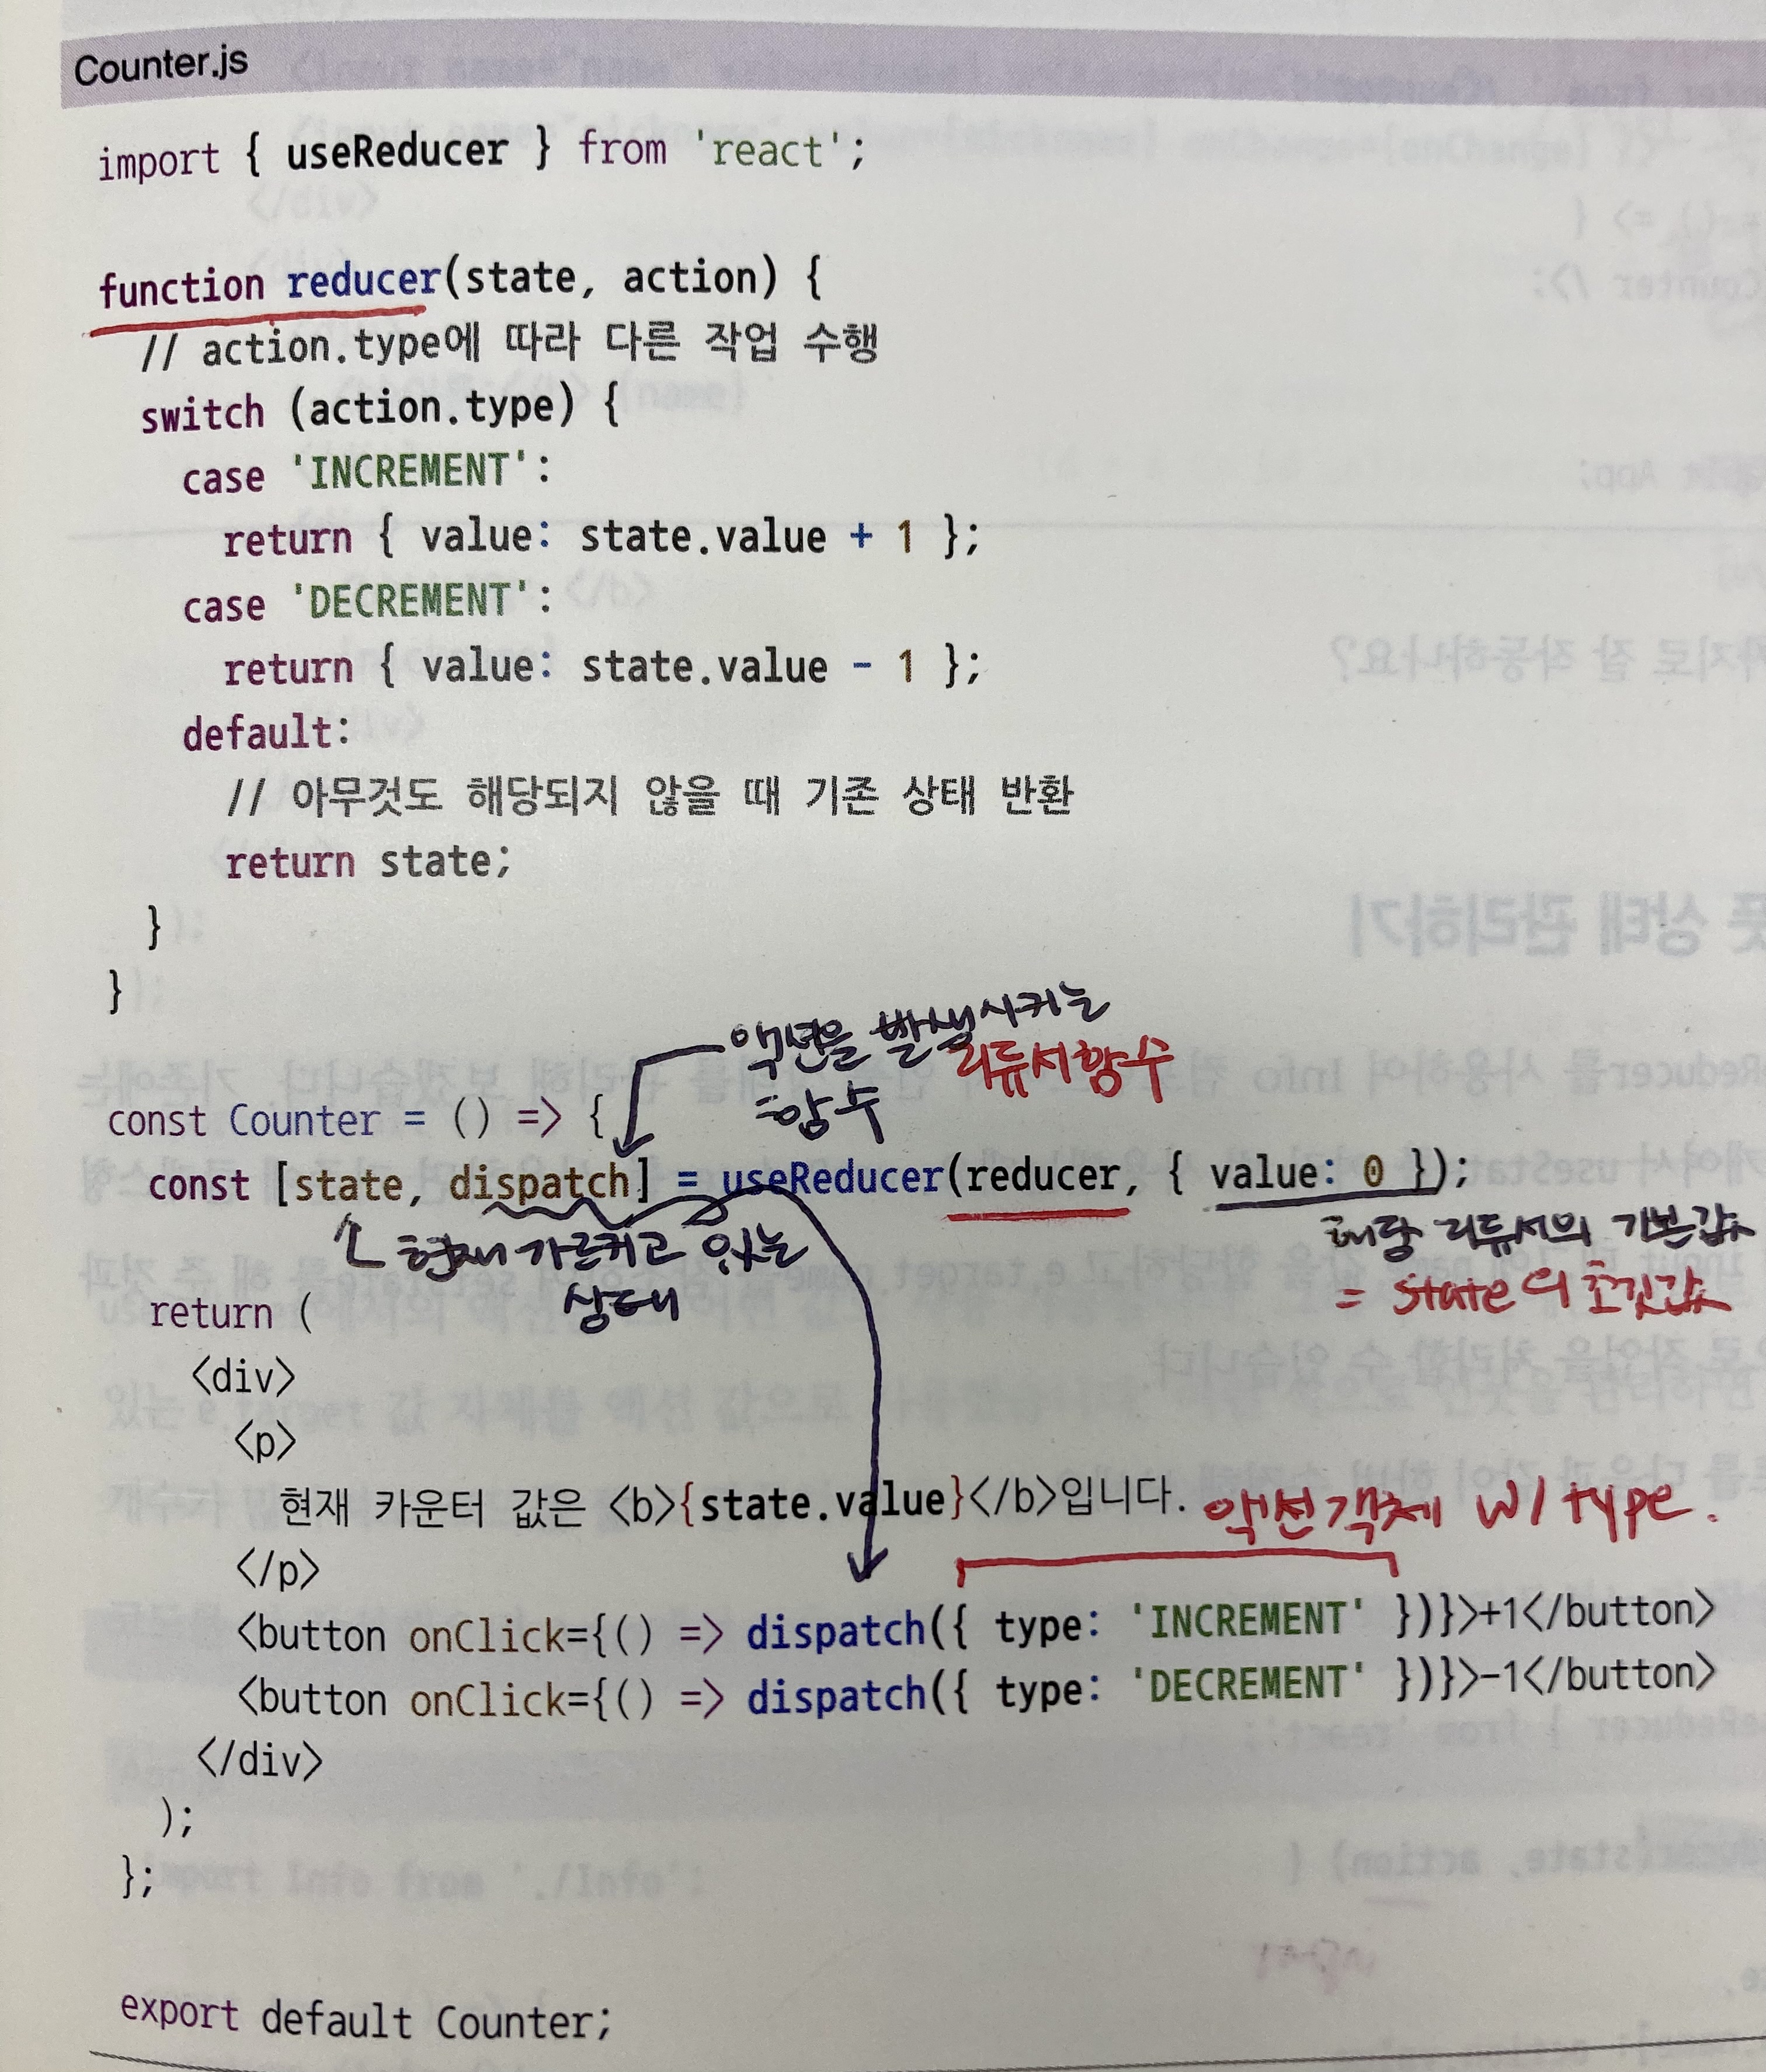 Counter.js
import { useReducer } from 'react';
function reducer(state, action) {
// action.type에 따라 다른 작업 수행
switch (action.type) {
case 'INCREMENT':
return { value: state.value + 1 };
case 'DECREMENT':
return { value: state.value - 1 };
default:
// 아무것도 해당되지 않을 때 기존 상태 반환
return state;
}
}
액션을 발생시키는
함수
리듀서함수
const Counter = () => {
const [state, dispatch] = useReducer(reducer, { value: 0 });
현재 가르키고 있는
상태
해당 리듀서의 기본값
= state의 초깃값
return (
<div>
<p>
현재 카운터 값은 <b>{state.value}</b>입니다.
액션객체 w/ type.
</p>
<button onClick={() => dispatch({ type: 'INCREMENT' })}>+1</button>
<button onClick={() => dispatch({ type: 'DECREMENT' })}>-1</button>
</div>
);
};
export default Counter;